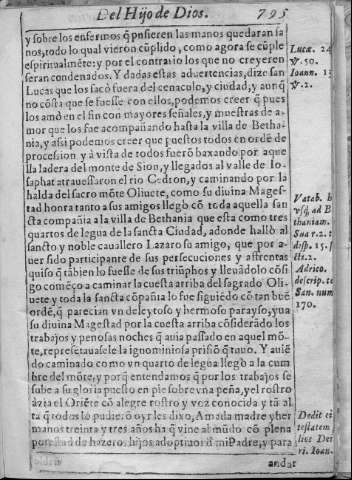 Del Hijo de Dios. 795
y sobre los enfermos q̃ pusieren las manos quedaran sa
nos, todo lo qual vieron cũplido, como agora se cũple
espiritualmẽte: y por el contrario los que no creyeren
seran condenados. Y dadas estas aduertencias, dize san
Lucas que los sacò fuera del cenaculo, y ciudad, y aunq̃
no cõsta que se fuesse con ellos, podemos creer q̃ pues
los amò en el fin con mayores señales, y muestras de a-
mor que los fue acompañando hasta la villa de Betha-
nia, y assi podemos creer que puestos todos en ordẽ de
procession y à vista de todos fuerõ baxando por aque
lla ladera del monte de Sion, y llegados al valle de Io-
saphat atrauessaron el rio Cedron, y caminando por la
halda del sacro mõte Oliuete, como su diuina Mages-
tad honra tanto a sus amigos llegò cõ toda aquella san
cta compañia a la villa de Bethania que esta como tres
quartos de legua de la sancta Ciudad, adonde hallò al
sancto y noble cauallero Lazaro su amigo, que por a-
uer sido participante de sus persecuciones y affrentas
quiso q̃ tãbien lo fuesse de sus triũphos y lleuãdolo cõsi
go comẽço a caminar la cuesta arriba del sagrado Oli-
uete y toda la sancta cõpañia lo fue siguiẽdo cõ tan buẽ
ordẽ, q̃ parecian vn deleytoso y hermoso parayso, yua
su diuina Magestad por la cuesta arriba cõsiderãdo los
trabajos y penosas noches q̃ auia passado en aquel mõ-
te, representauasele la ignominiosa prisiõ q̃ tuuo. Y auiẽ
do caminado como vn quarto de legua llegò a la cum
bre del mõte, y porq̃ entendamos q̃ por los trabajos se
sube a su gloria puesto en pie sobre vna peña, y el rostro
àzia el Oriẽte cõ alegre rostro y voz conocida y tã al
ta q̃ todos lo pudierõ oyr les dixo, Amada madre y her
manos treinta y tres años ha q̃ vine al mũdo cõ plena
potestad de hazeros hijos adoptiuos d̃ mi Padre, y para
andar
Lucæ. 24
℣. 50.
Ioann. 13
℣. 2.
Vatab.
ad B
thaniam.
Sua r. 2. t
disp. 15.
ctiõ. 2.
Adrico.
descrip. te
San. num
170.
Dedit ei
testatem
lios Dei
ri. Ioan.